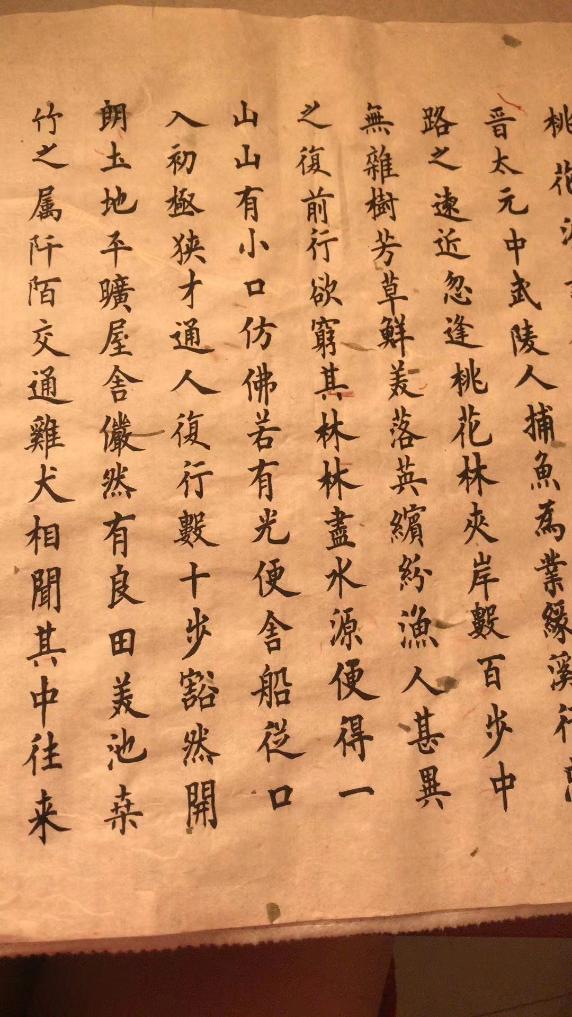 桃花源
晋太元中武陵人捕魚為業緣溪行忘
路之遠近忽逢桃花林夾岸數百步中
無雜樹芳草鮮美落英繽紛漁人甚異
之復前行欲窮其林林盡水源便得一
山山有小口仿佛若有光便舍船従口
入初極狭才通人復行數十步豁然開
朗土地平曠屋舍儼然有良田美池桒
竹之属阡陌交通雞犬相聞其中往来